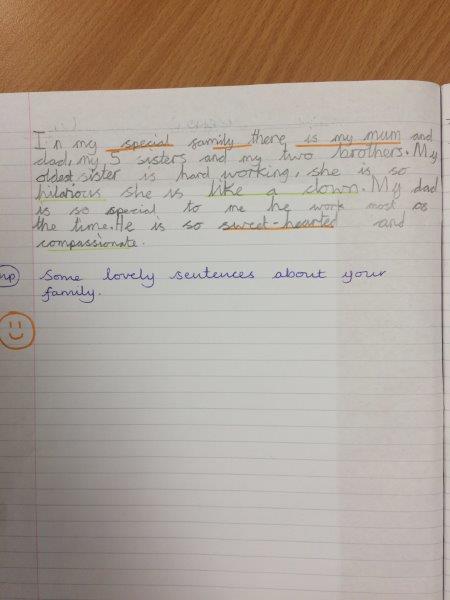 In my special family there is my mum and
dad, my 5 sisters and my two brothers. My
oldest sister is hard working, she is so
hilarious she is like a clown. My dad
is so special to me he work most os
the time. He is so sweet-hearted and
compassionate.
Some lovely sentences about your
family.